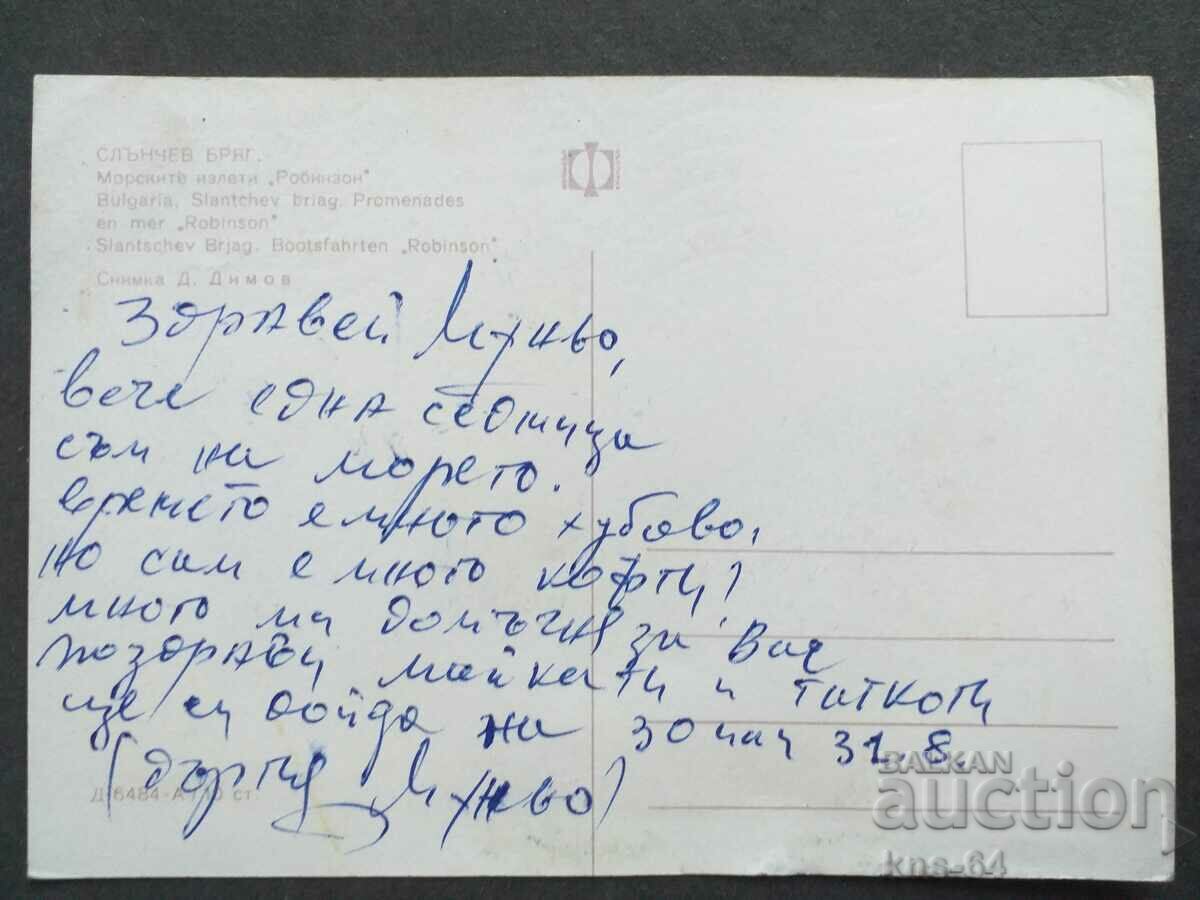 СЛЪНЧЕВ БРЯГ.
Морските излети „Робинзон"
Bulgaria, Slantchev briag. Promenades
en mer „Robinson"
Slantschev Brjag. Bootsfahrten „Robinson"
Снимка Д. Димов
Здравей Муньо,
вече една седмица
съм на морето.
времето е много хубаво,
но сам е много
много ми домъчня за Вас
поздрави майка ти и татко ти
ще си дойда на 30 или 31.8.
Муньо
Д-6484-А 10 ст.
BALKAN
auction
kns-64